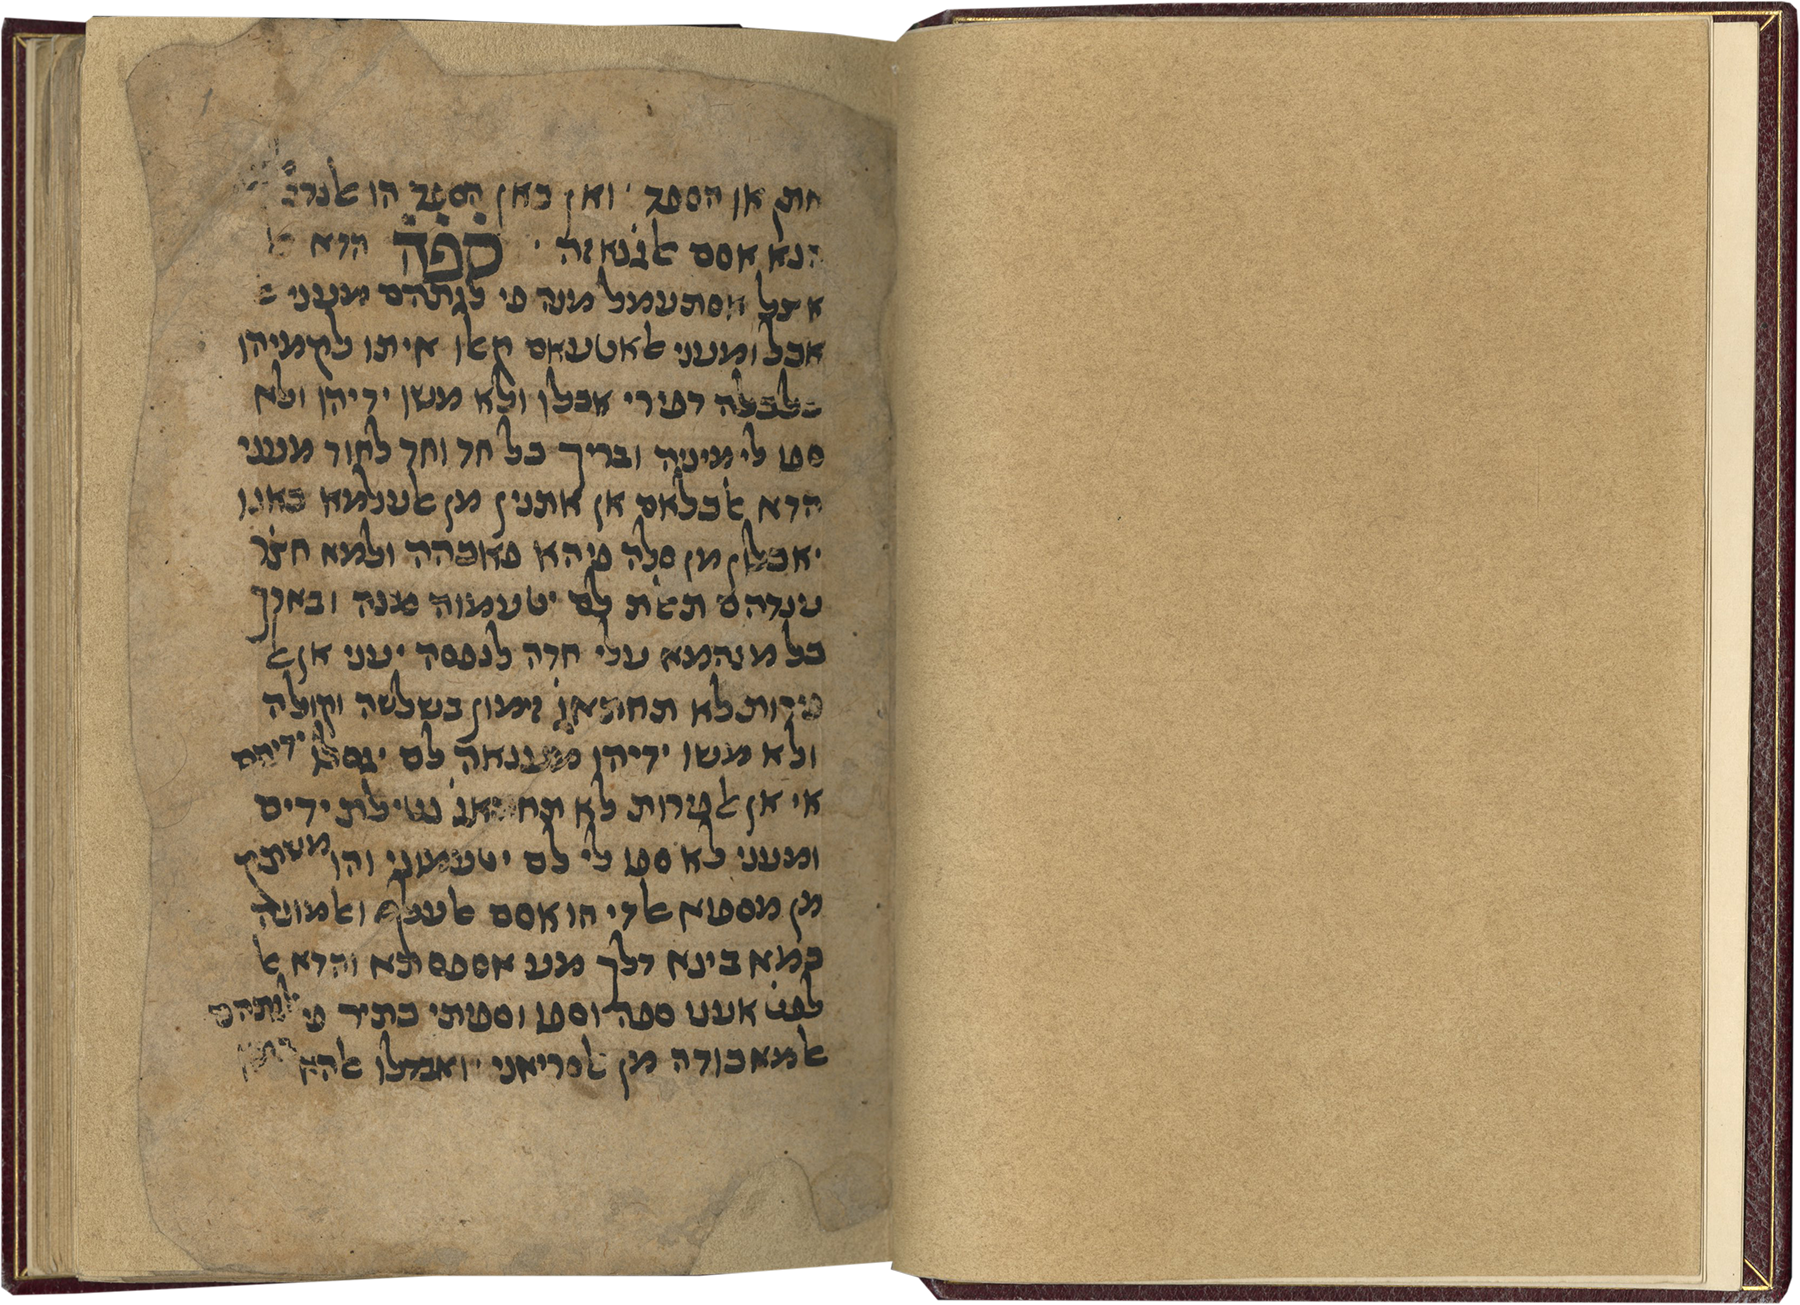 חתי אן הספד ׳ ואן כאן הספד הו אלנדב
הנא אסם אלג׳נאזה ׳ ספד הדא
אצל אסתעמל מנה פי לגתהם מעני
אכל ומעני אלאטעאם קאלו איתו לקמיהון
כלכלה דפירי אכלו ולא משו ידיהן ולא
ספו לי מיניה ובריך כל חד וחד לחוד מעני
הדא אלכלאם אן אתנין מן אלעלמא כאנו
יאכלון מן סלה פיהא פאכהה ולמא חצ׳ר
ענדהם תאלת לם יטעמוה מנה ובארך
כל מנהמא עלי חדה לנפסה יעני אן אל
פירות לא תחתאג׳ זימון בשלשה וקולה
ולא משו ידיהן מענאה לם יגסלו ידיהם
אי אן אלפירות לא תחתאג׳ נטילת ידים
ומעני לא ספו לי לם יטעמוני והו משתק
מן מספוא אלדי הו אסם אלעלף ואלמונה
כמא בינא דלך מע אספסתא והדא אל
לפט׳ אעני ספה וספו וספיתי כתיר פי לגתהם
אלמאכודה מן אלסריאני ואבדלו אלהא